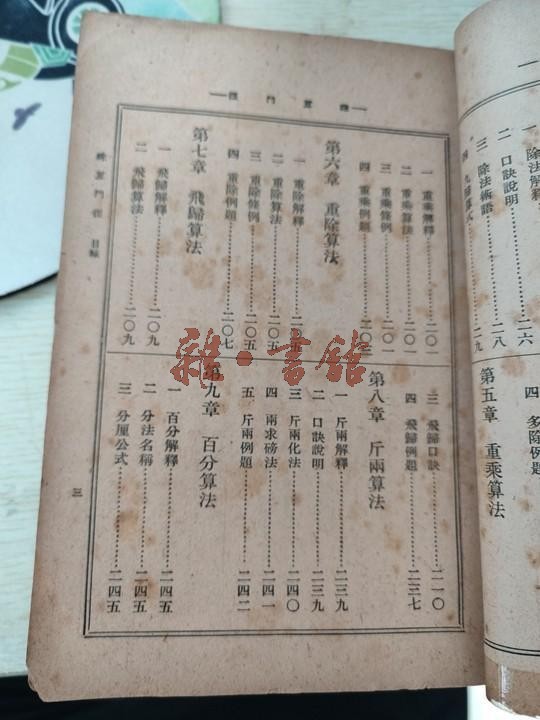 一 除法解釋
二 口訣說明……二六
三 除法術語……二八
四 九歸算式……二九
四 多除例題
第五章 重乘算法
一 重乘解釋……二〇一
二 重乘算法……二〇一
三 重乘條例……二〇一
四 重乘例題……二〇
第六章 重除算法
一 重除解釋……二〇五
二 重除算法……二〇五
三 重除條例……二〇五
四 重除例題……二〇七
第七章 飛歸算法
一 飛歸解釋……二〇九
二 飛歸算法……二〇九
三 飛歸口訣……二一〇
四 飛歸例題……二三七
第八章 斤兩算法
一 斤兩解釋……二三九
二 口訣說明……二三九
三 斤兩化法……二四〇
四 兩求磅法……二四一
五 斤兩例題……二四二
第九章 百分算法
一 百分解釋……二四五
二 分法名稱……二四五
三 分厘公式……二四五
目錄
三
雜·書館